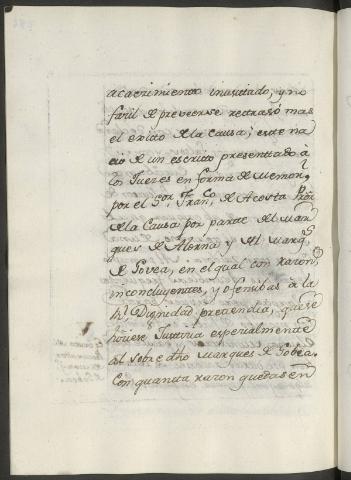 acaecimiento inusitado, y no
facil de preveerse retrasó mas
el exito de la causa; este na
cio de un escrito presentado à
los Juezes en forma de memor.l
por el S.or Fran.co de Acosta Pro.or
de la Causa por parte del Mar
ques de Alorna y del Marq.s
de Govea, en el qual con razon.s
inconcluyentes, y ofensibas à la
R.l Dignidad pretendia, que se
hiciese Justicia especialmente
al sobre dho Marques de Gobea.
Con quanta razon quedasen